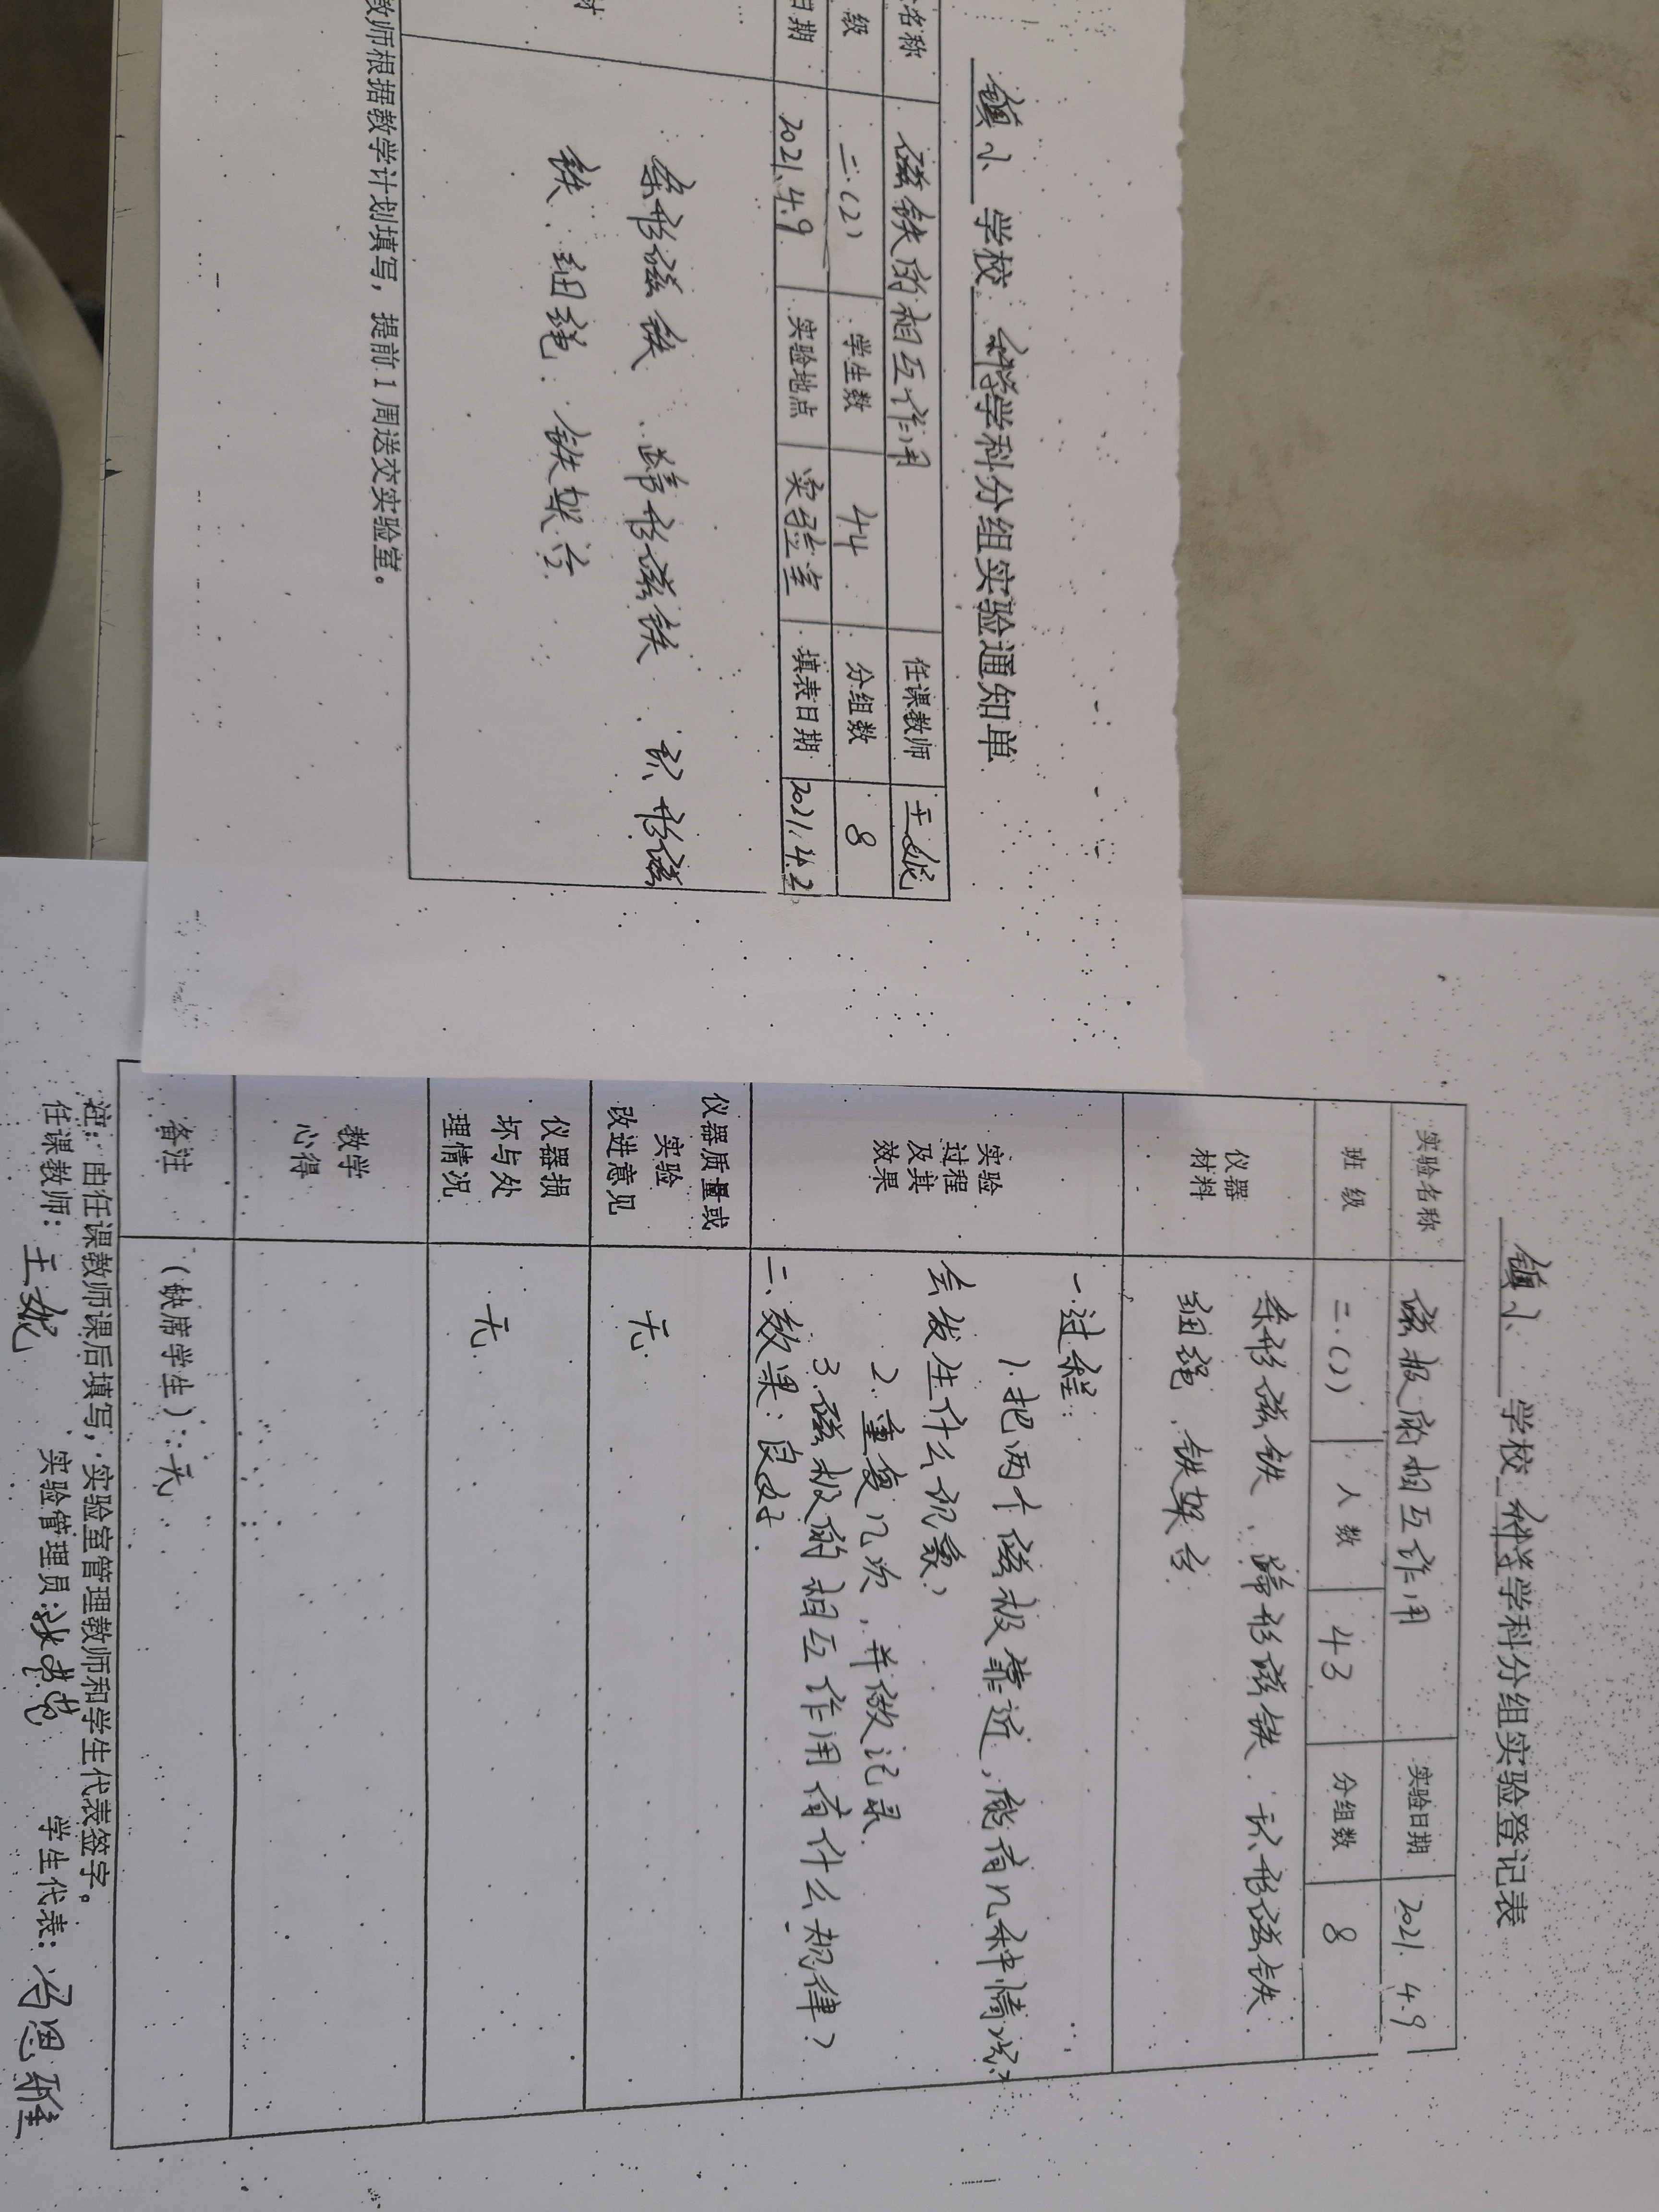 镇小 学校 科学学科分组实验通知单
名称 磁铁的相互作用 任课教师 王妮
级 二.(2) 学生数 44 分组数 8
日期 2021.4.9 实验地点 实验室 填表日期 2021.4.2
材
条形磁铁、蹄形磁铁、环形磁
铁、细绳、铁架台.
教师根据教学计划填写，提前1周送交实验室。
镇小 学校 科学学科分组实验登记表
实验名称 磁极的相互作用 实验日期 2021.4.9
班 级 二.(2) 人 数 43 分组数 8
仪器
材料
条形磁铁、蹄形磁铁、环形磁铁
细绳、铁架台.
实验
过程
及其
效果
一.过程:
1.把两个磁极靠近,能有几种情况?
会发生什么现象?
2.重复几次,并做记录.
3.磁极的相互作用有什么规律?
二、效果:良好.
仪器质量或
实验
改进意见
无.
仪器损
坏与处
理情况
无
教学
心得
备注
(缺席学生):无
注：由任课教师课后填写，实验室管理教师和学生代表签字。
任课教师: 王妮 实验管理员: 学生代表: 冯思雅